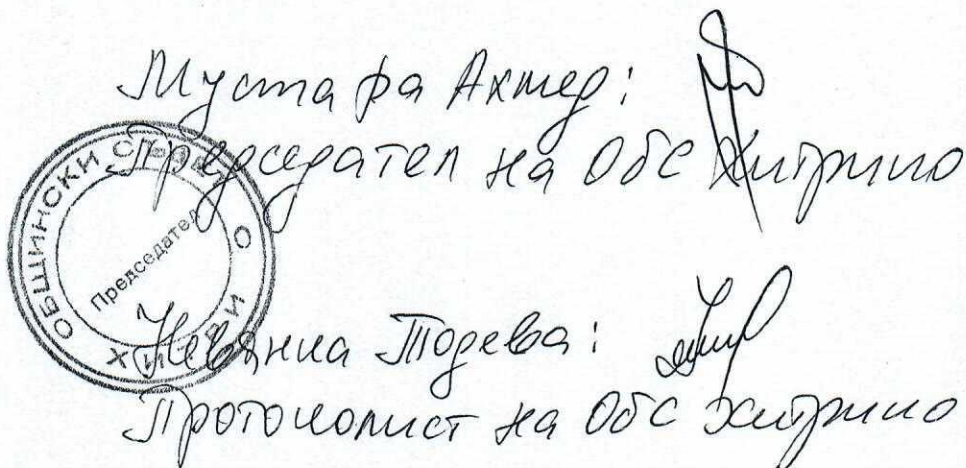 Мустафа Ахмед:
Председател на ОбС Хитрино
ОБЩИНСКИ СЪВЕТ
Председател
Невянка Тодева:
Протоколист на ОбС Хитрино